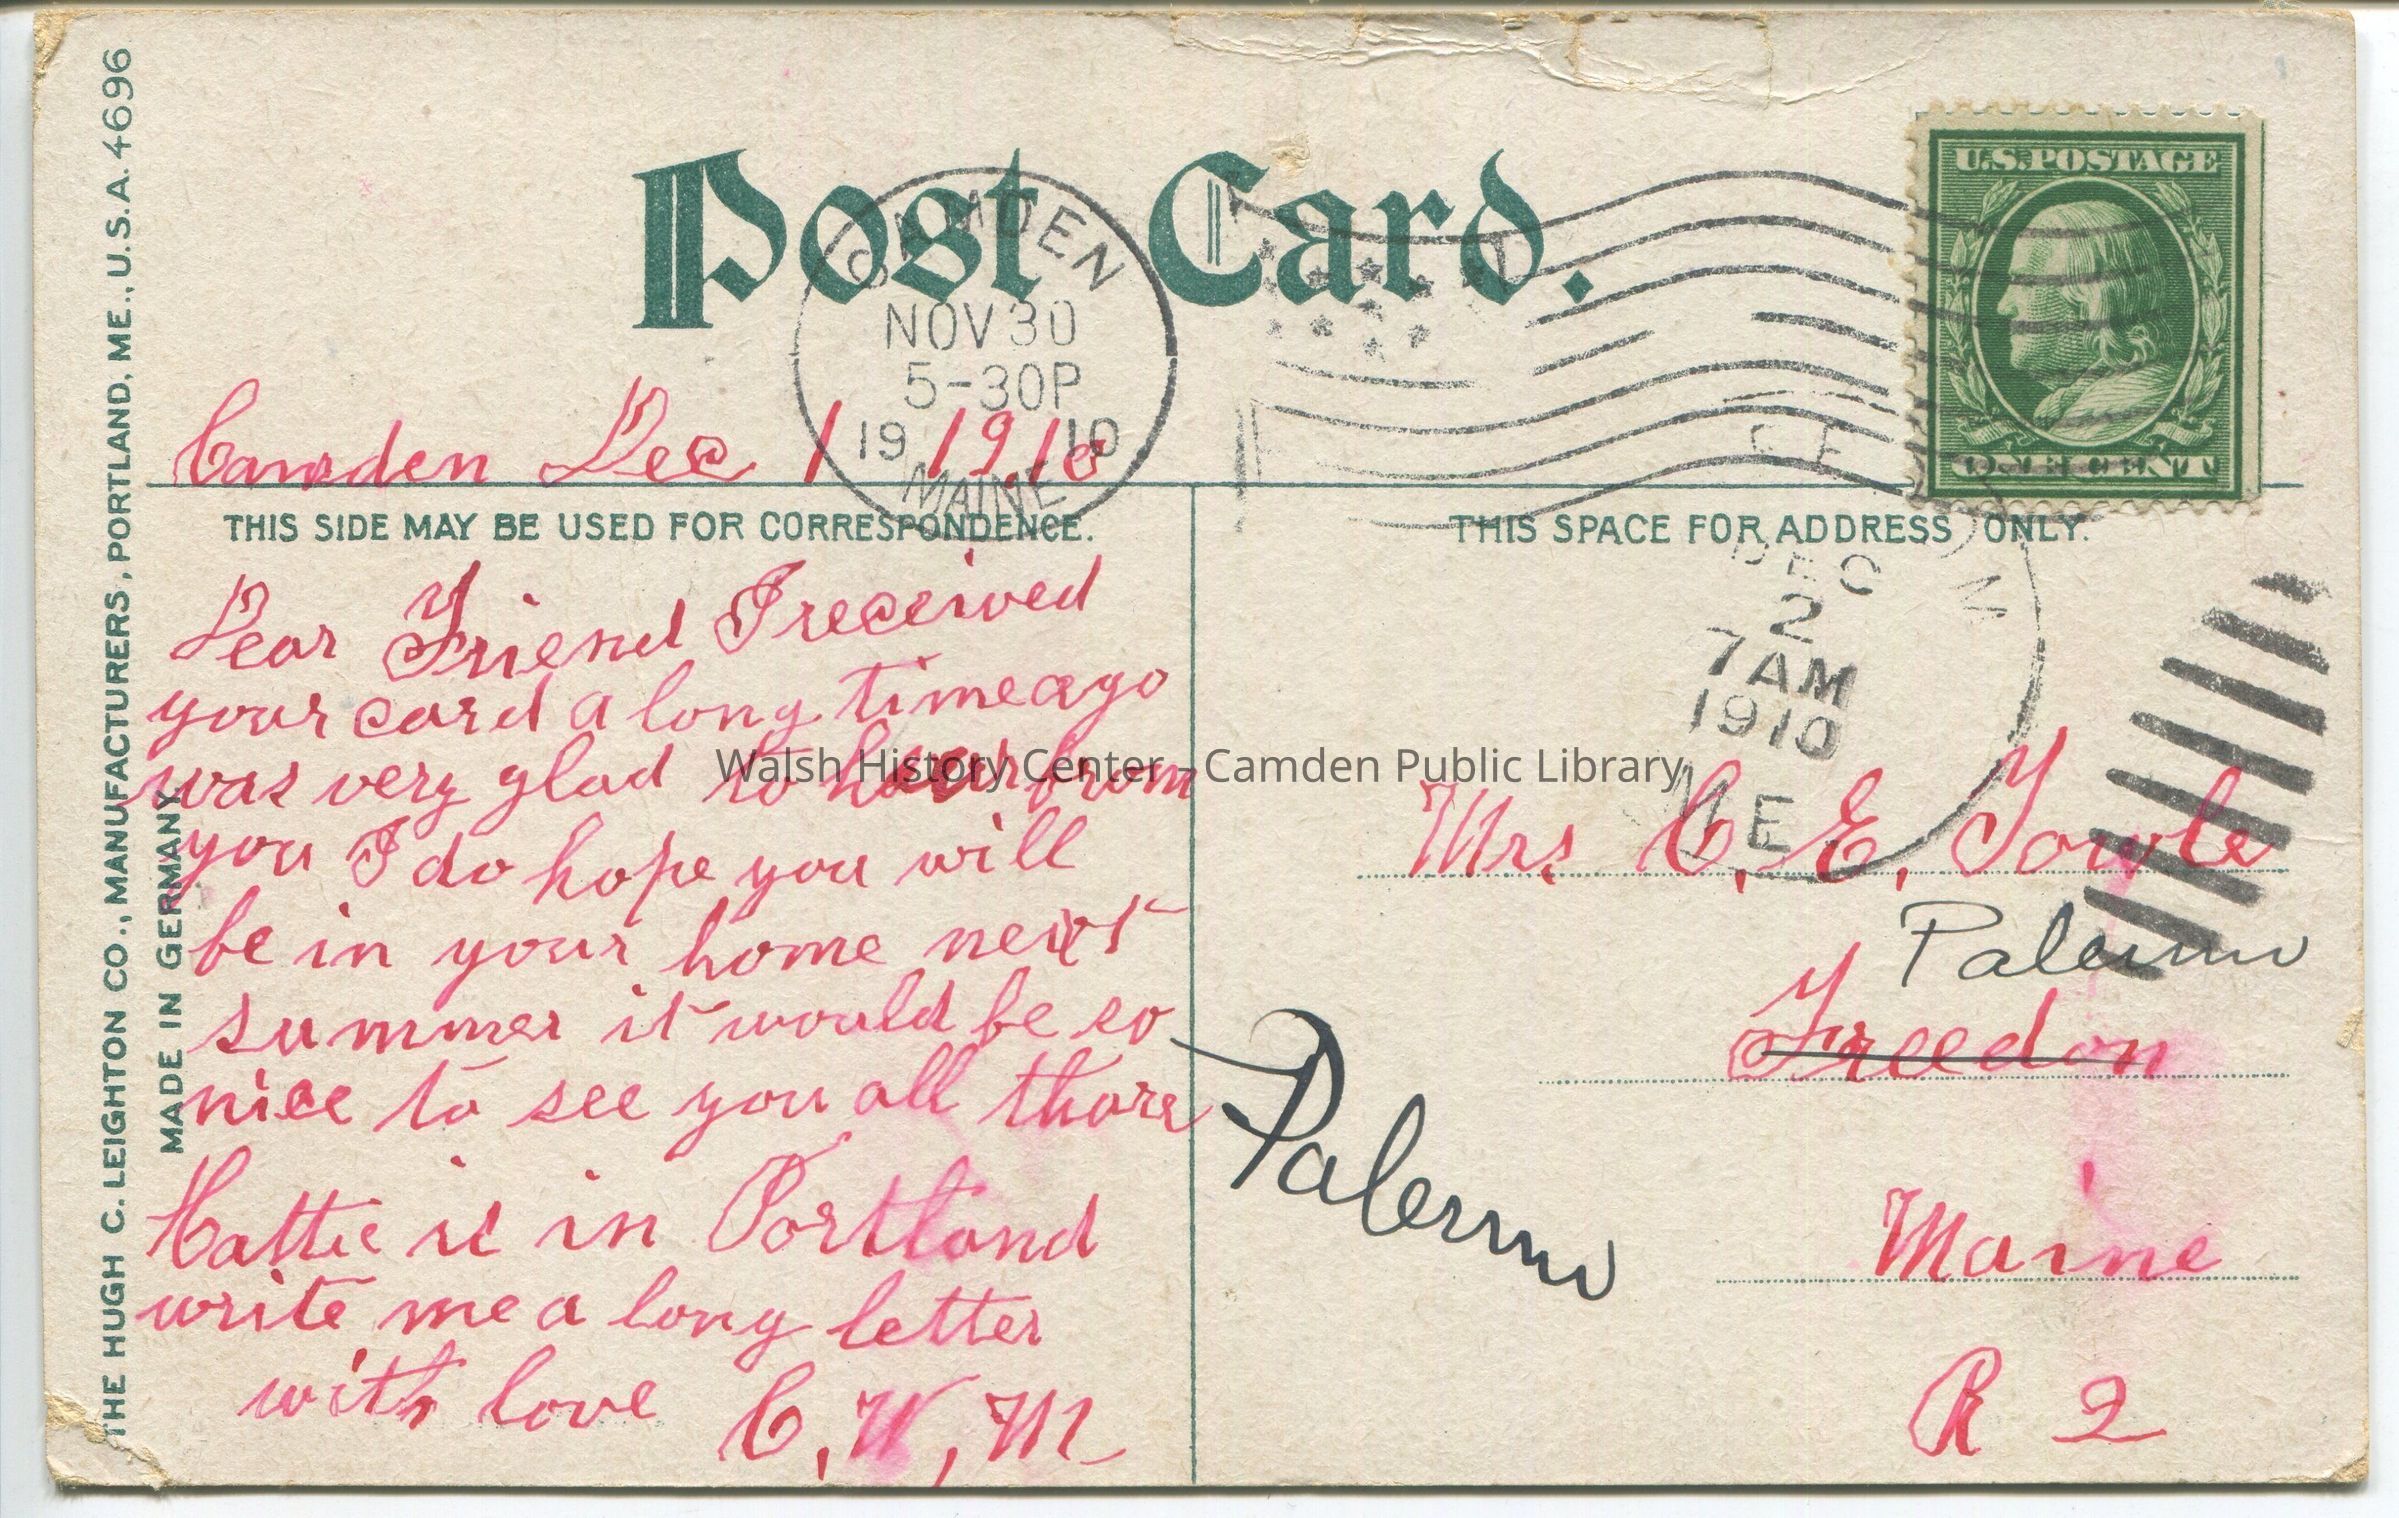 THE HUGH C. LEIGHTON CO., MANUFACTURERS, PORTLAND, ME., U.S.A. 4696
MADE IN GERMANY
Post Card.
CAMDEN
NOV 30
5-30P
19 10
MAINE
U.S. POSTAGE
ONE CENT
Camden Dec 1 1910
THIS SIDE MAY BE USED FOR CORRESPONDENCE.
Dear Friend I received
your card a long time ago
was very glad to hear from
you I do hope you will
be in your home next
summer it would be so
nice to see you all thare
Hattie is in Portland
write me a long letter
with love C, W, M
THIS SPACE FOR ADDRESS ONLY.
DEC
2
7 AM
1910
ME.
Mrs. C, E, Towle
Palermo
Freedon
Palermo
Maine
R 2
Walsh History Center - Camden Public Library